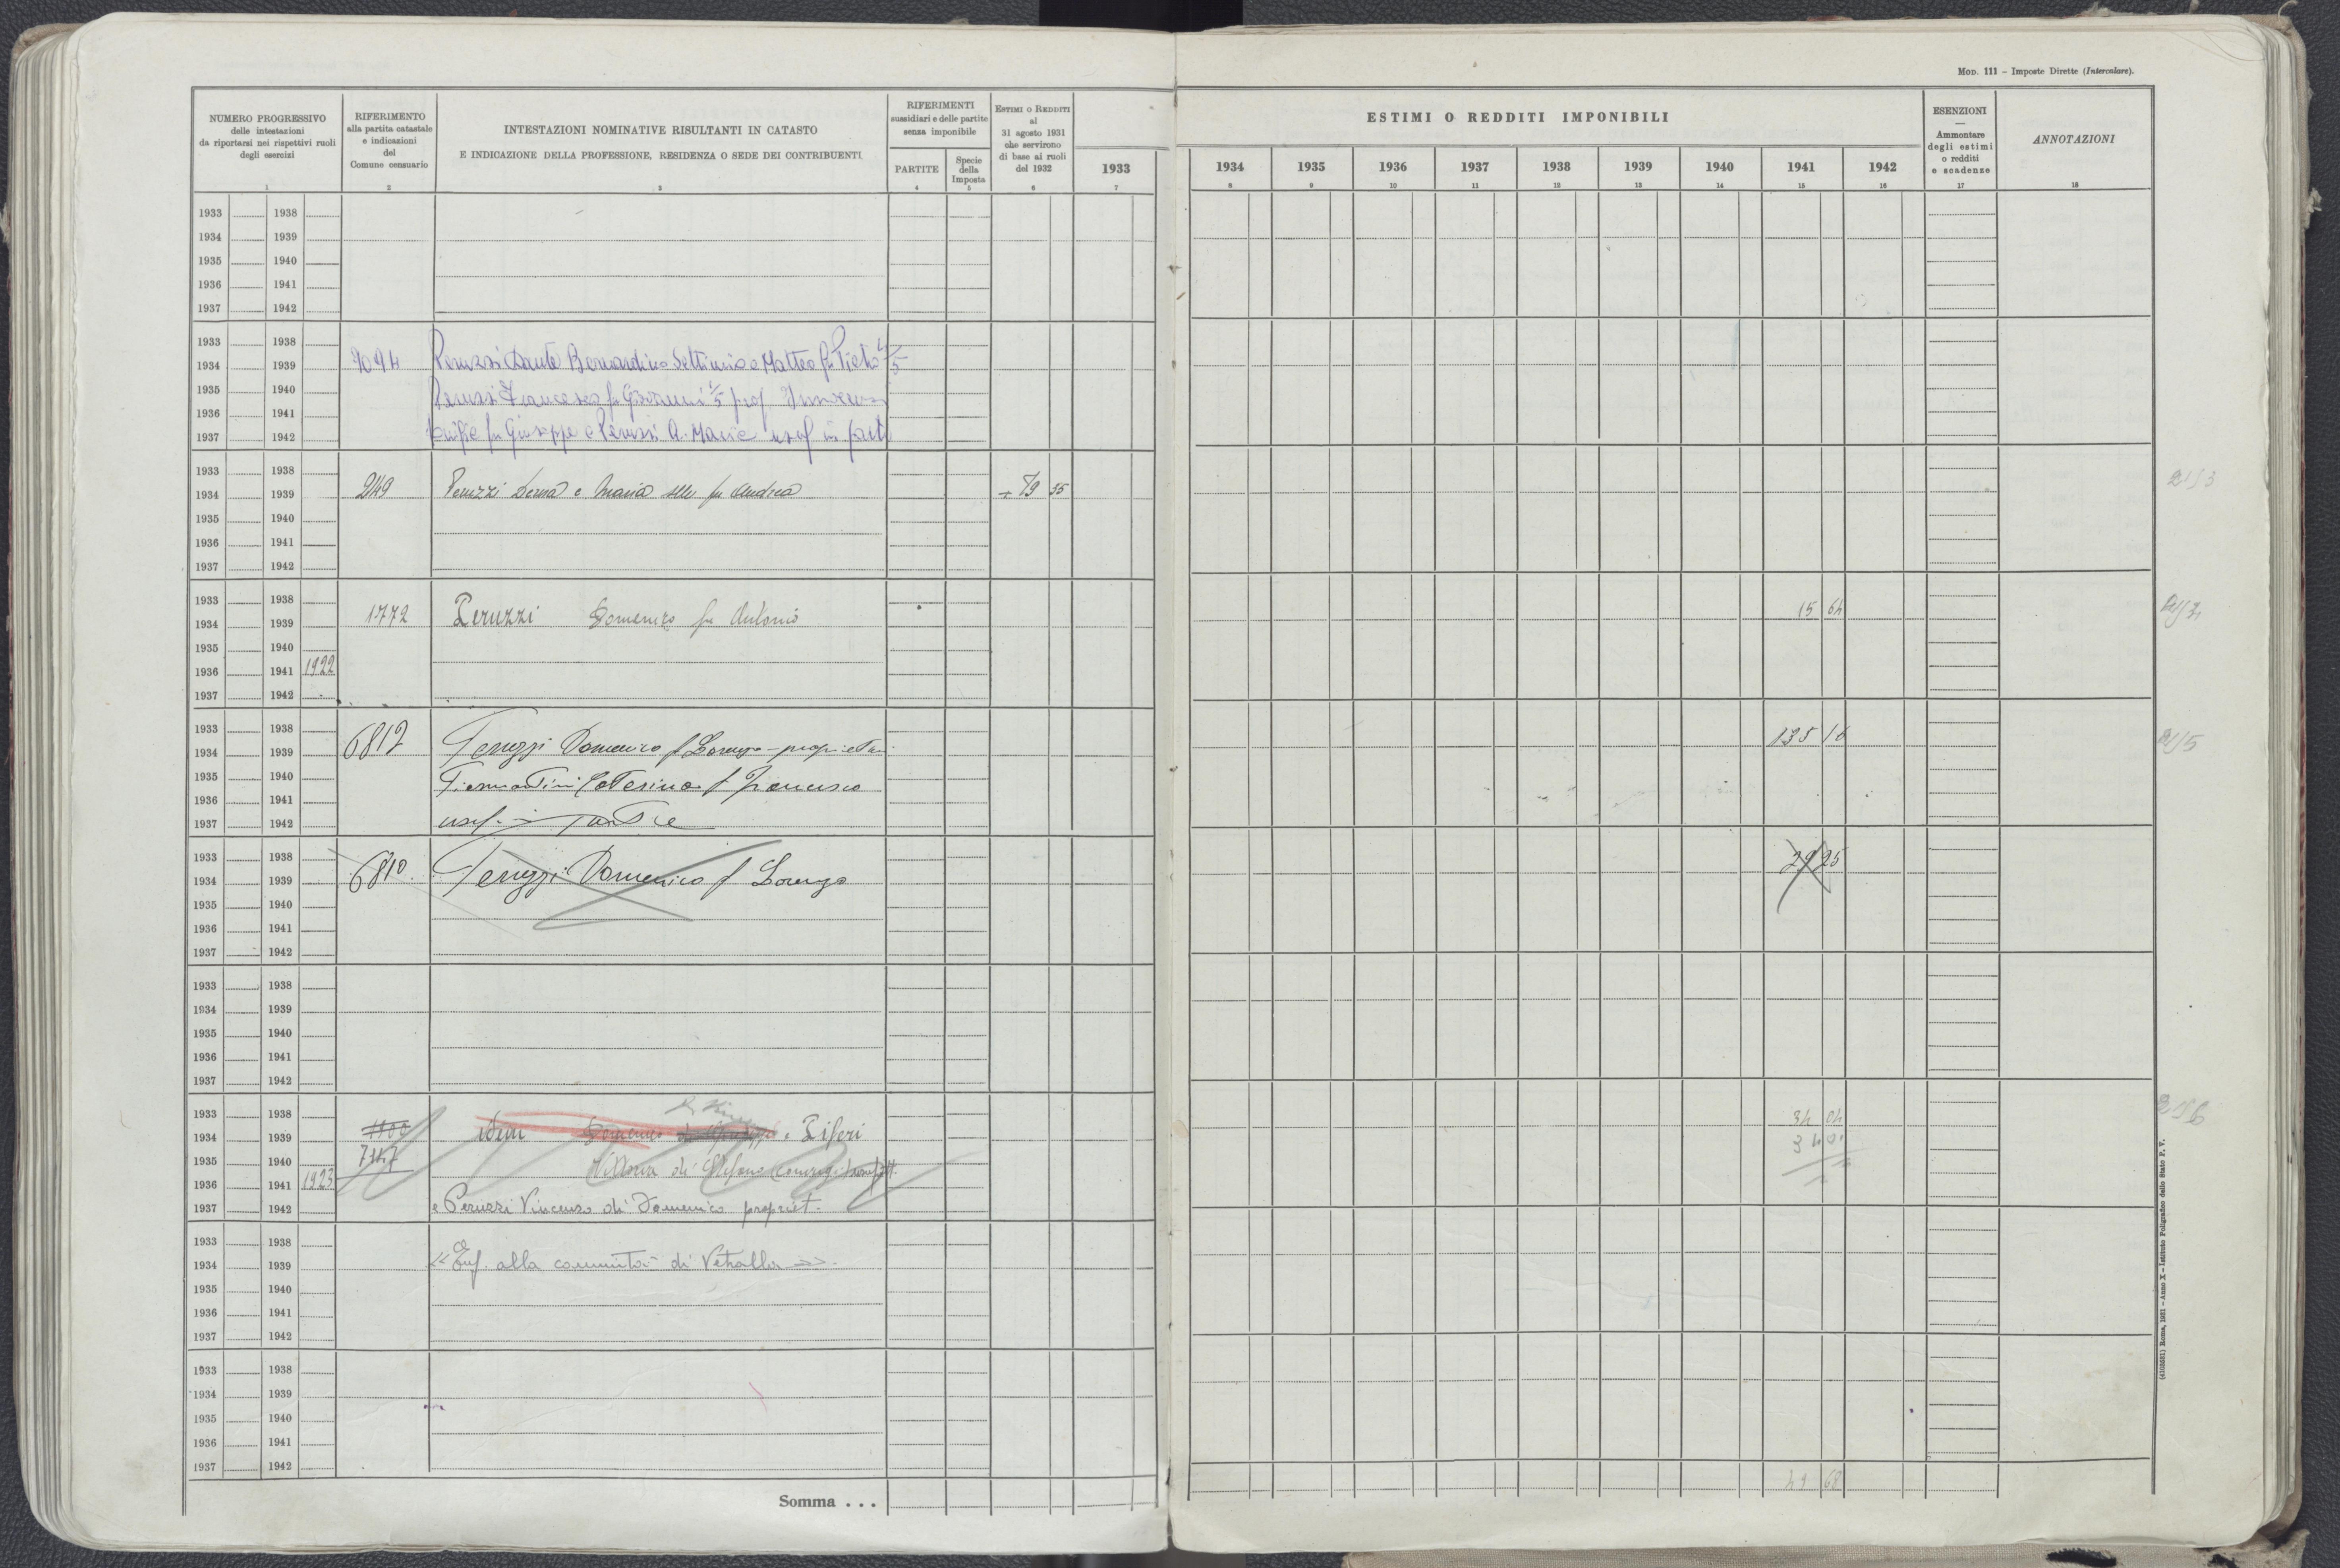 Mod. 111 – Imposte Dirette (Intercalare).
NUMERO PROGRESSIVO
delle intestazioni
da riportarsi nei rispettivi ruoli
degli esercizi
1
RIFERIMENTO
alla partita catastale
e indicazioni
del
Comune censuario
2
INTESTAZIONI NOMINATIVE RISULTANTI IN CATASTO
E INDICAZIONE DELLA PROFESSIONE, RESIDENZA O SEDE DEI CONTRIBUENTI
3
RIFERIMENTI
sussidiari e delle partite
senza imponibile
PARTITE
4
Specie
della
Imposta
5
Estimi o Redditi
al
31 agosto 1931
che servirono
di base ai ruoli
del 1932
6
1933
7
ESTIMI O REDDITI IMPONIBILI
1934 1935 1936 1937 1938 1939 1940 1941 1942
8 9 10 11 12 13 14 15 16
ESENZIONI
—
Ammontare
degli estimi
o redditi
e scadenze
17
ANNOTAZIONI
18
1933 1938
1934 1939
1935 1940
1936 1941
1937 1942
1933 1938
7094 Peruzzi Dante Bernardino Settimio e Matteo fu Pietro 4/5
1934 1939
1935 1940
Peruzzi Francesco fu Giovanni 1/5 prop
1936 1941
fu Giuseppe e Peruzzi A. Maria usuf in parte
1937 1942
1933 1938
1934 1939 249 Peruzzi Derna e Maria slle fu Andrea 79 55
1935 1940
1936 1941
1937 1942
1933 1938
1934 1939 1772 Peruzzi Domenico fu Antonio 15 64
1935 1940
1936 1941 1922
1937 1942
1933 1938
1934 1939 6812 Peruzzi Domenico f Lorenzo – proprietar 135 16
1935 1940
Caterina f Francesco
1936 1941
1937 1942 usuf. in parte
1933 1938
1934 1939 6810 Peruzzi Domenico f Lorenzo 29 25
1935 1940
1936 1941
1937 1942
1933 1938
1934 1939
1935 1940
1936 1941
1937 1942
1933 1938
1934 1939 1100 idem Domenico di Giuseppe e Piferi 34 04
1935 1940 7147
Vittoria di Stefano coniugi
1936 1941 1923
1937 1942 e Peruzzi Vincenzo di Domenico propriet.
1933 1938
1934 1939 « Enf. alla comunità di Vetralla »
1935 1940
1936 1941
1937 1942
1933 1938
1934 1939
1935 1940
1936 1941
1937 1942
Somma . . . 49 68
(4103581) Roma, 1931 – Anno X – Istituto Poligrafico dello Stato P. V.